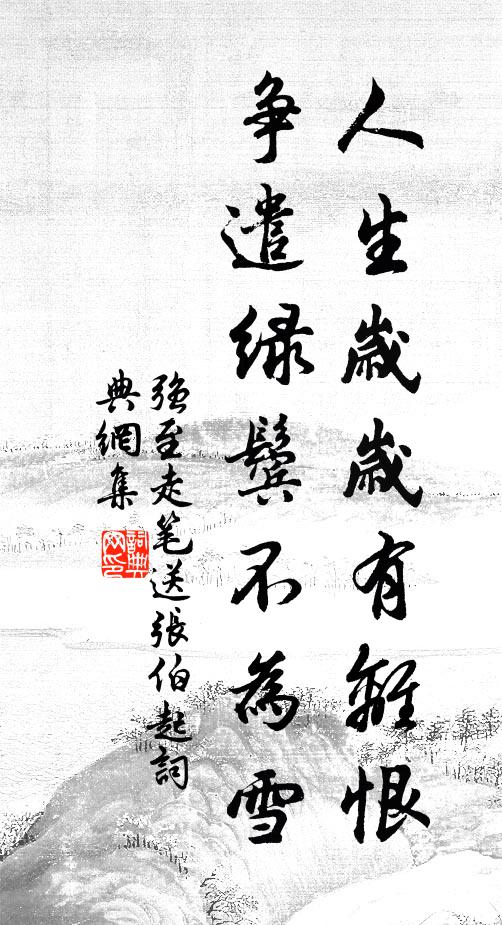 人生歲歲有離恨
爭遣綠鬢不為雪
強至走笔送張伯起詞
典網集
詞典
网印